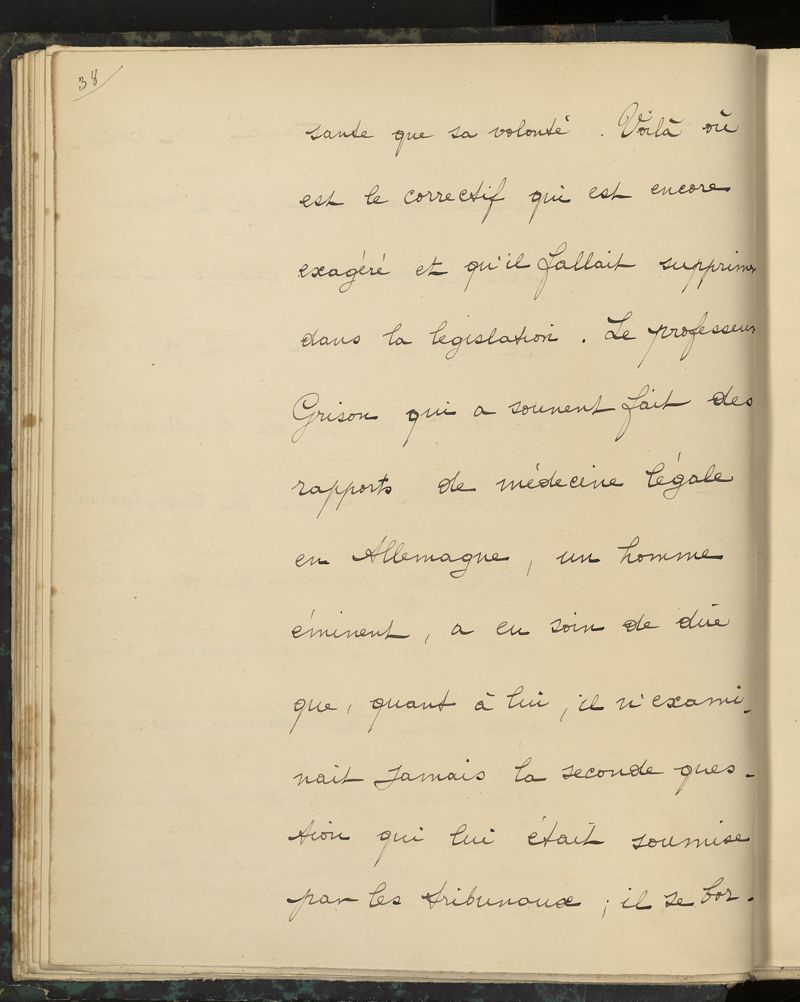 38
sante que sa volonté. Voilà où
est le correctif qui est encore
exagéré et qu'il fallait supprimer
dans la législation. Le professeur
Grison qui a souvent fait des
rapports de médecine légale
en Allemagne, un homme
éminent, a eu soin de dire
que, quant à lui, il n'exami-
nait jamais la seconde ques-
tion qui lui était soumise
par les tribunaux ; il se bor-